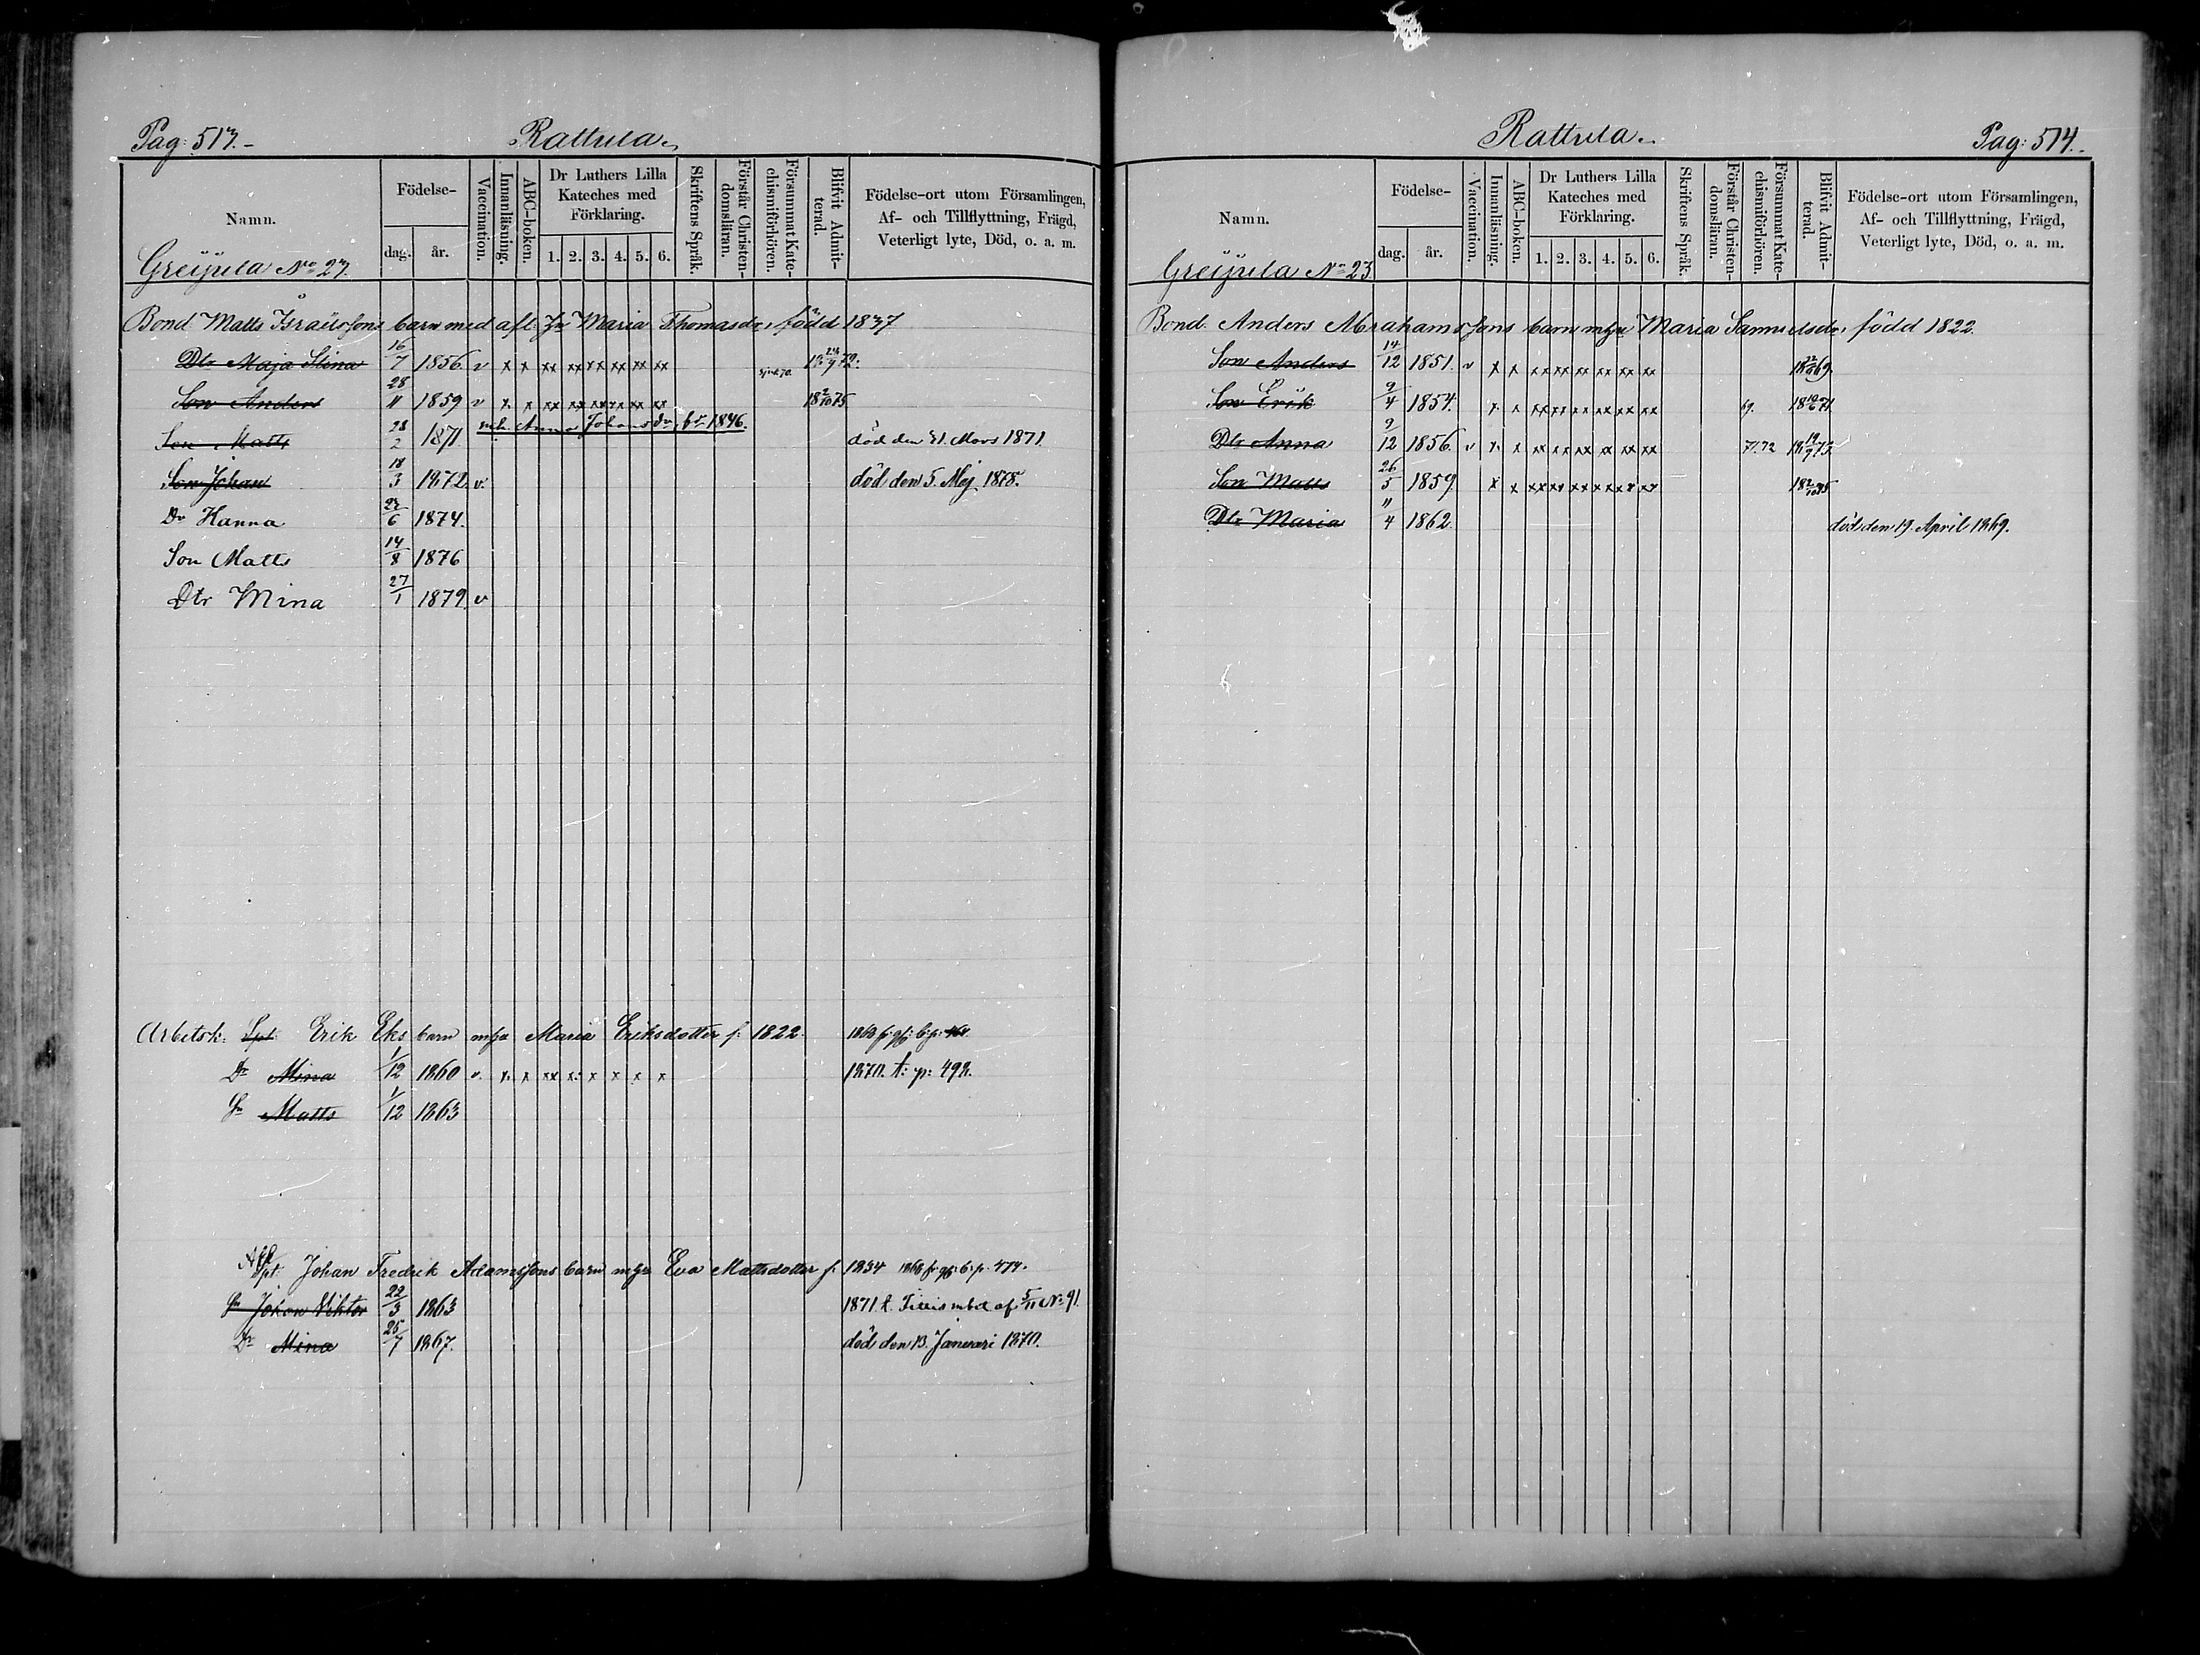 Pag: 513.
Rattula.
Namn.
Födelse-
dag.
år.
Vaccination.
Innanläsning.
ABC-boken.
Dr Luthers Lilla
Kateches med
Förklaring.
1. 2. 3. 4. 5. 6.
Skriftens Språk.
Förstår Christen-
domsläran.
Försummat Kate-
chismiförhören.
Blifvit Admit-
terad.
Födelse-ort utom Församlingen,
Af- och Tillflyttning, Frägd,
Veterligt lyte, Död, o. a. m.
Greijula No 23.
Bond Matts Israelssons barn med afl. Maria Thomasdr, född 1837
Dtr Maja Stina 16/7 1856 v x x xx xx xx xx xx xx
Son Anders 28/11 1859 v x x xx xx xx xx xx xx 18 2/10 75
mh. Anna Johansdr, f. 1846.
Son Matts 28/2 1871 död den 31. Mars 1871.
Son Johan 18/3 1872 v. död den 5. Maj 1878.
Dr Hanna 22/6 1874.
Son Matts 14/8 1876
Dtr Mina 27/1 1879 v
Arbetsk: Spt. Erik Eks barn mha Maria Eriksdotter f. 1822.
Dr Mina 1/12 1860 v. x x xx x x x x x 1870. t: p: 492.
Sn Matts 1/12 1863
Spt. Johan Fredrik Adamssons barn mha Eva Mattsdotter f. 1834 1868 fr. p. 474.
Sn Johan Viktor 22/3 1863 1871 t. af 5/11 No 91
Dr Mina 25/7 1867. död den 13. Januari 1870.
Rattula.
Pag: 514.
Namn.
Födelse-
dag.
år.
Vaccination.
Innanläsning.
ABC-boken.
Dr Luthers Lilla
Kateches med
Förklaring.
1. 2. 3. 4. 5. 6.
Skriftens Språk.
Förstår Christen-
domsläran.
Försummat Kate-
chismiförhören.
Blifvit Admit-
terad.
Födelse-ort utom Församlingen,
Af- och Tillflyttning, Frägd,
Veterligt lyte, Död, o. a. m.
Greijula No 23
Bond. Anders Abrahamssons barn mha Maria Samuelsdr, född 1822.
Son Anders 14/12 1851. v x x xx xx xx xx xx xx 18 22/9 69.
Son Erik 9/4 1854. x x xx xx xx xx xx xx 69. 18 18/6 71.
Dtr Anna 9/12 1856. v x x xx xx xx xx xx xx 71.72 18 19/9 73.
Son Matts 26/5 1859 x x xx xx xx xx xx xx 18 2/10 75
Dtr Maria 11/4 1862. död den 19. April 1869.